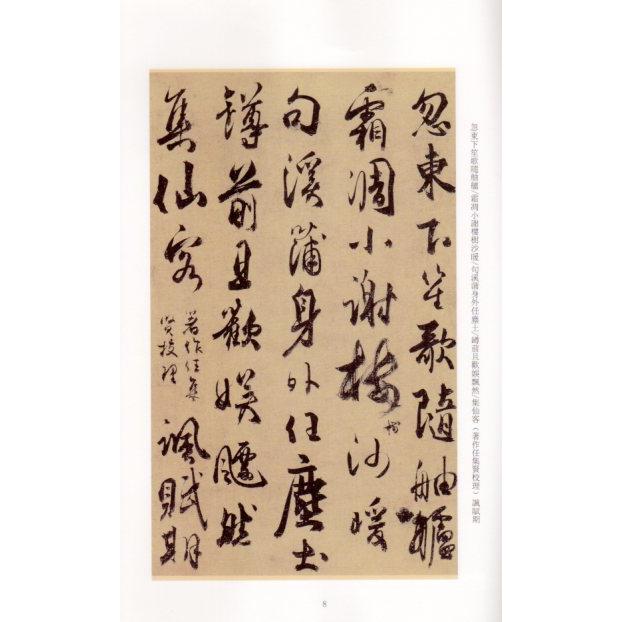 忽東下笙歌隨舳艫/霜凋小謝樓樹沙暖/句溪蒲身外任塵土/罇前且歡娛飄然/集仙客（著作任集賢校理）諷賦期
忽東下笙歌隨舳艫
霜凋小謝樓樹沙暖
句溪蒲身外任塵土
罇前且歡娛飄然
集仙客
著作任集
賢校理
諷賦期
8